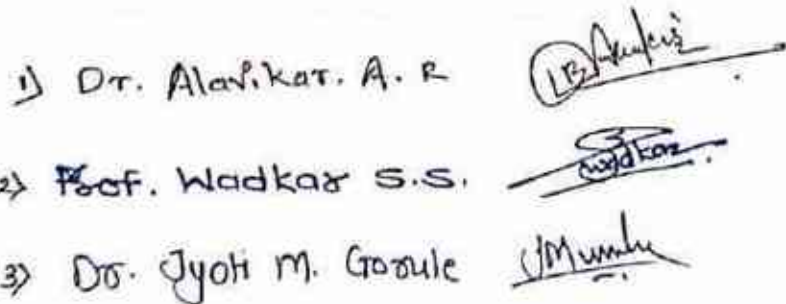 1) Dr. Alavikar. A. R
2) Prof. Wadkar S.S. Wadkar
3) Dr. Jyoti M. Gorule